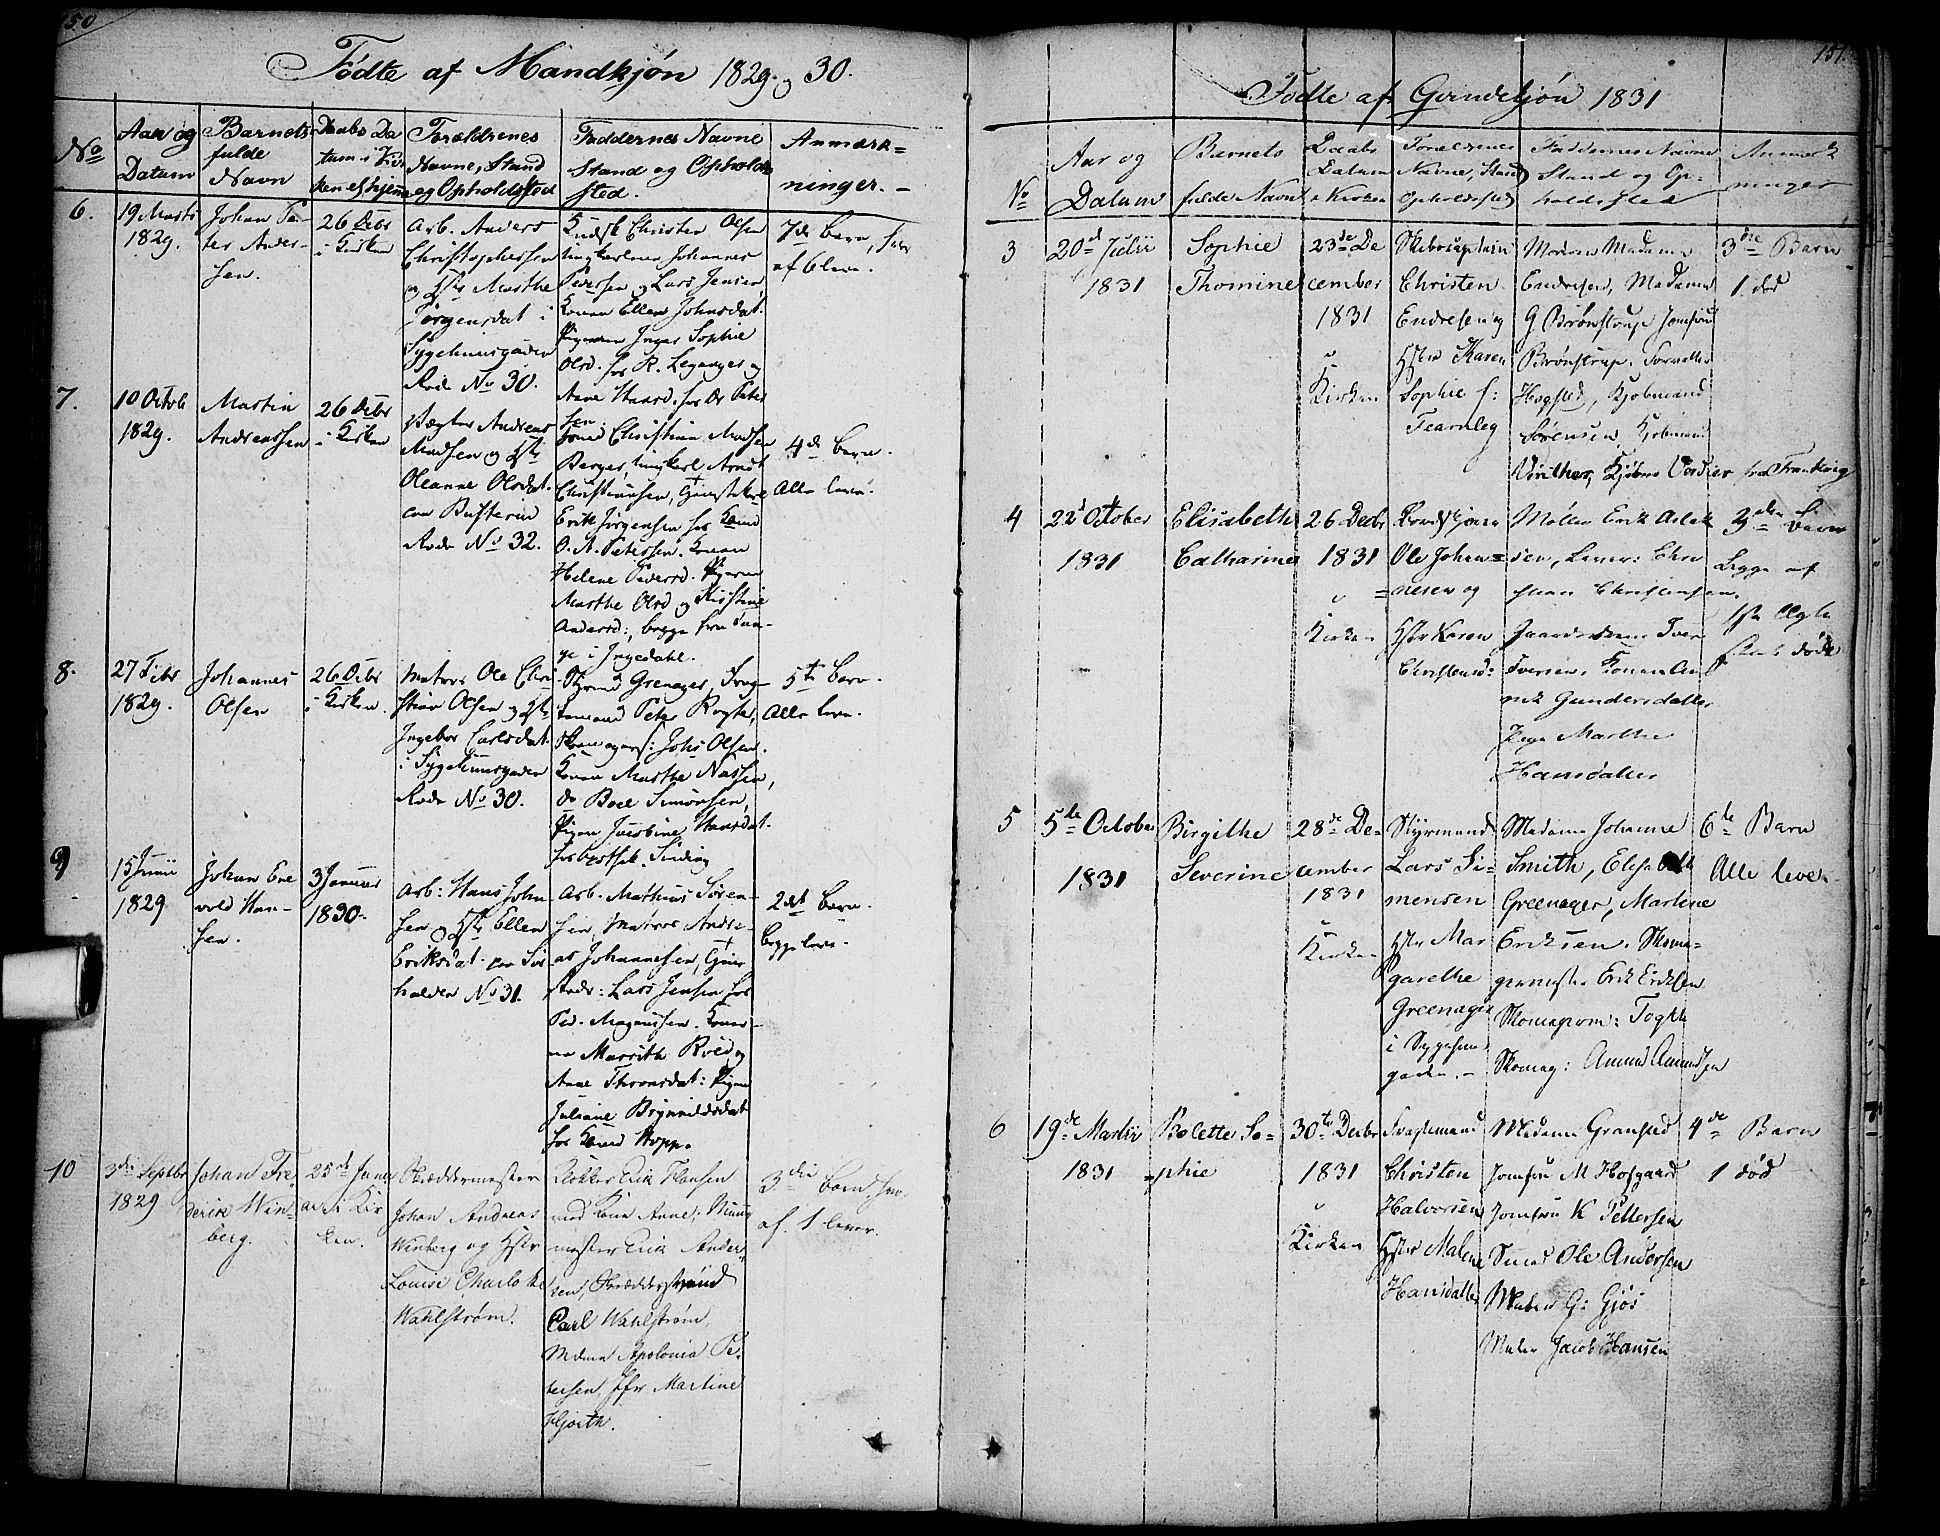 50
Fødte af Mandkjøn 1829. og 30.
No
Aar og
Datum
Barnets
fulde
Navn
Daabs Da
tum i Kir
Forældrenes
Navne, Stand
og Opholdsted
Faddernes Navne
Stand og Opholds
sted.
Anmærk=
ninger.
6.
19 Marts
1829.
Johan Pe
ter Ander-
sen.
26 Debr
i Kirken
Arb. Anders
Christophersen
og Hstr Marthe
Jørgensdat i
Sygehuusgaden
Rode No 30.
Christen Olsen
Johannes
Pedersen og Lars Jensen
Konen Ellen Johnsdat.
Pigerne Inger Sophie
Olsd. hos R. Leganger og
Anne Hansd. hos Dr Peter
sen.
7de Barn,
af 6 leve.
7.
10 Octob
1829.
Martin
Andreassen
26 Debr
i Kirken
Vægter Andreas
Madsen og Hstr
Oleanne Olsdat.
Rode No 32.
Christian Madsen
Berger, Ungkarl Arndt
Christiansen,
Erik Jørgensen hos
O. A. Petersen. Konen
Helene Pedersd. Pigerne
Marthe Olsd og Kirstine
Andersd:, begge fra Tun-
ge i Ingedahl.
4de Barn.
Alle leve.
8.
27 Febr
1829.
Johannes
Olsen
26 Debr
i Kirken.
Matros Ole Chri
stian Olsen og Hstr
Ingebor Carlsdat.
i Sygehuusgaden
Rode No 30.
Styrmd Grenager, Fragt-
mand Peter
Skomagers: Johs Olsen.
Konen Marthe
do Boel Simonsen,
Pigen Jacobine Hansdat.
5te Barn.
Alle leve.
9
15 Junii
1829
Johan Ene
vold Han-
sen.
3 Januar
1830.
Arb: Hans John
sen og Hstr Ellen
Eriksdat.
halden No 31.
Arb. Mathias Søren-
sen, Matros Andre-
as Johannesen,
Lars Jensen hos
Ped. Magnussen. Koner-
ne
Anne Thronsdat: Pigen
Juliane Brynnildsdat
hos
2det Barn.
begge leve.
10
3die Septbr
1829
Johan Fre
derik Win-
berg.
25de Janu
ar i Kir
ken.
Skræddermester
Johan Andreas
Winberg og Hstr
Louise Charlotte
Wahlstrøm.
Klokker Erik Hansen
med Kone Anne,
mester Erik Ander
sen, Skræddersvend
Carl Wahlstrøm,
Mdme Apolonia Pe-
tersen, Jfr Martine
Hjorth.
3die Barn,
af. 1 lever.
151.
Fødte af Qvindekjøn 1831
No
Aar og
Datum
Barnets
fulde Navn
Daabs
Datum
i Kirken
Forældrenes
Navne, Stand
Opholdssted
Faddernes Navne
Stand og Op-
holdssted
Anmærk
ninger
3
20d Julii
1831
Sophie
Thomine
23de De
cember
1831
i
Kirken
Skibscaptain
Christen
Endresen og
Hstru Karen
Sophie f:
Fearnley
Moderen Madame
Endresen, Madame
G Brønstrup Jomfru
Brønstrup.
Høgsted, Kjøbmand
Sørensen, Kjøbmand
Frankrig
3die Barn
1. død
4
22d October
1831
Elisabeth
Catharine
26 Decbr
1831
i
Kirken
Ole Johan=
=nesen og
Hstr Karen
Christensd:
Møller Erik Aslak
sen,
stian Christensen.
Iver
Iversen, Konen An
ne Gundersdatter
Pige Marthe
Hansdatter
3die Barn
begge af
1ste Ægte
skab døde
5
5te October
1831
Birgithe
Severine
28de De=
cember
1831
i
Kirken
Styrmand
Lars Si-
mensen
Hstr Mar
garethe
Greenager
i Sygehuus
gaden. -
Madame Johanne
Smith,
Greenager, Martine
Eriksen. Skoma=
germester Erik Eriksen
Skomag: Amund Amundsen
6te Barn
Alle lever.
6
19de Martii
1831
Bolette So=
=phie
30te Decbr
1831
i
Kirken
Fragtemand
Christen
Halvorsen
Hstr Malene
Hansdatter
Madame Gransted
Jomfru M Hofgaard
Jomfru K Pettersen
Smed Ole Andersen
Maler G: Gjøs
Maler Jacob Hansen
4de Barn
1 død